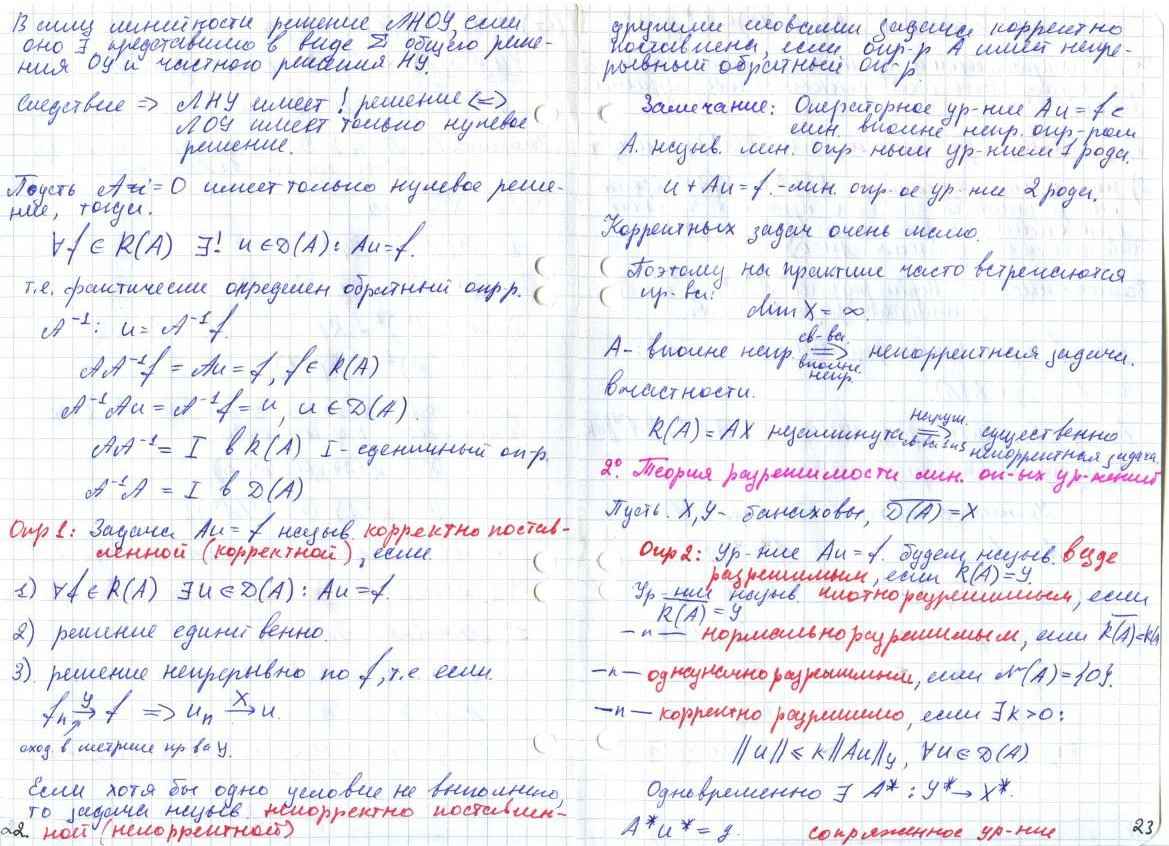 В силу линейности решение ЛНОУ, если
оно ∃ представимо в виде Σ общего реше-
ния ОУ и частного решения НУ.
Следствие => ЛНУ имеет ! решение <=>
ЛОУ имеет только нулевое
решение.
Пусть Au = 0 имеет только нулевое реше-
ние, тогда.
∀f ∈ R(A) ∃! u ∈ D(A): Au = f.
т.е. фактически определен обратный опр.
A⁻¹: u = A⁻¹f.
AA⁻¹f = Au = f, f ∈ R(A)
A⁻¹Au = A⁻¹f = u, u ∈ D(A).
AA⁻¹ = I в R(A) I - единичный опр.
A⁻¹A = I в D(A)
Опр 1: Задача Au = f назыв. корректно постав-
ленной (корректной), если
1) ∀f ∈ R(A) ∃u ∈ D(A): Au = f.
2) решение единственно.
3) решение непрерывно по f, т.е. если
fₙ →(Y) f => uₙ →(X) u.
сход. в метрике пр-ва Y.
Если хотя бы одно условие не выполнено,
то задача назыв. некорректно поставлен-
ной (некорректной)
22.
другими словами задача корректно
поставлена, если опр-р A имеет непре-
рывный обратный оп-р.
Замечание: Операторное ур-ние Au = f с
лин. вполне непр. опр-ром
A. назыв. лин. опр-ным ур-нием 1 рода.
u + Au = f. - лин. опр-ое ур-ние 2 рода.
Корректных задач очень мало.
Поэтому на практике часто встречаются
пр-ва:
dim X = ∞.
A - вполне непр. =>(св-ва вполне непр.) некорректная задача.
в частности.
R(A) = AX незамкнута =>(наруш.) существенно
некорректная задача.
2° Теория разрешимости лин. оп-ых ур-нений
Пусть X, Y - банаховы, D̅(̅A̅)̅ = X
Опр 2: Ур-ние Au = f. будем назыв. везде
разрешимым, если R(A) = Y.
Ур-ние назыв. плотно разрешимым, если
R̅(̅A̅)̅ = Y
—п— нормально разрешимым, если R̅(̅A̅)̅ = R(A
—п— однозначно разрешимым, если N(A) = {0}.
—п— корректно разрешимо, если ∃k > 0:
||u|| ≤ k||Au||_Y, ∀u ∈ D(A)
Одновременно ∃ A*: Y* → X*.
A*u* = g. сопряженное ур-ние
23